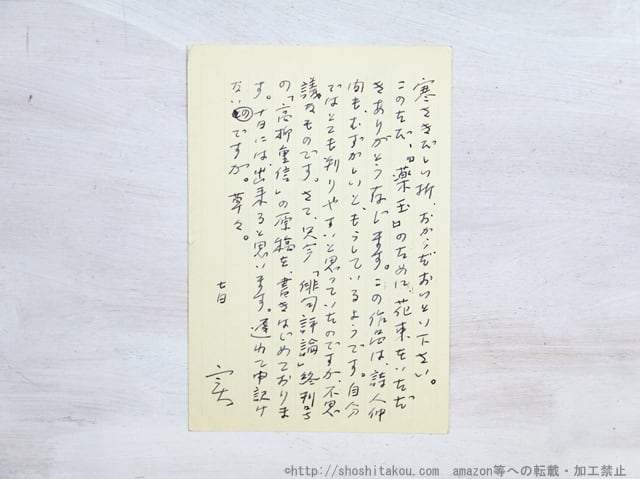 寒さきびしい折、おからだおいとい下さい。
このたび、『薬玉』のために、花束をいただ
きありがとうございます。この作品は、詩人仲
間も、むずかしいと、もうしているようです。自分
ではとても判りやすいと思っていたのですが、不思
議なものです。さて、只今「俳句評論」終刊号
の「高柳重信」の原稿を、書きはじめておりま
す。十日には出来ると思います。遅れて申訳け
ないのですが。草々。
七日
©http://shoshitakou.com amazon等への転載・加工禁止